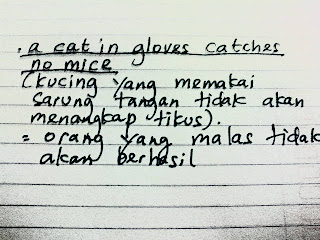 . a cat in gloves catches
no mice
(kucing yang memakai
sarung tangan tidak akan
menangkap tikus).
= orang yang malas tidak
akan berhasil